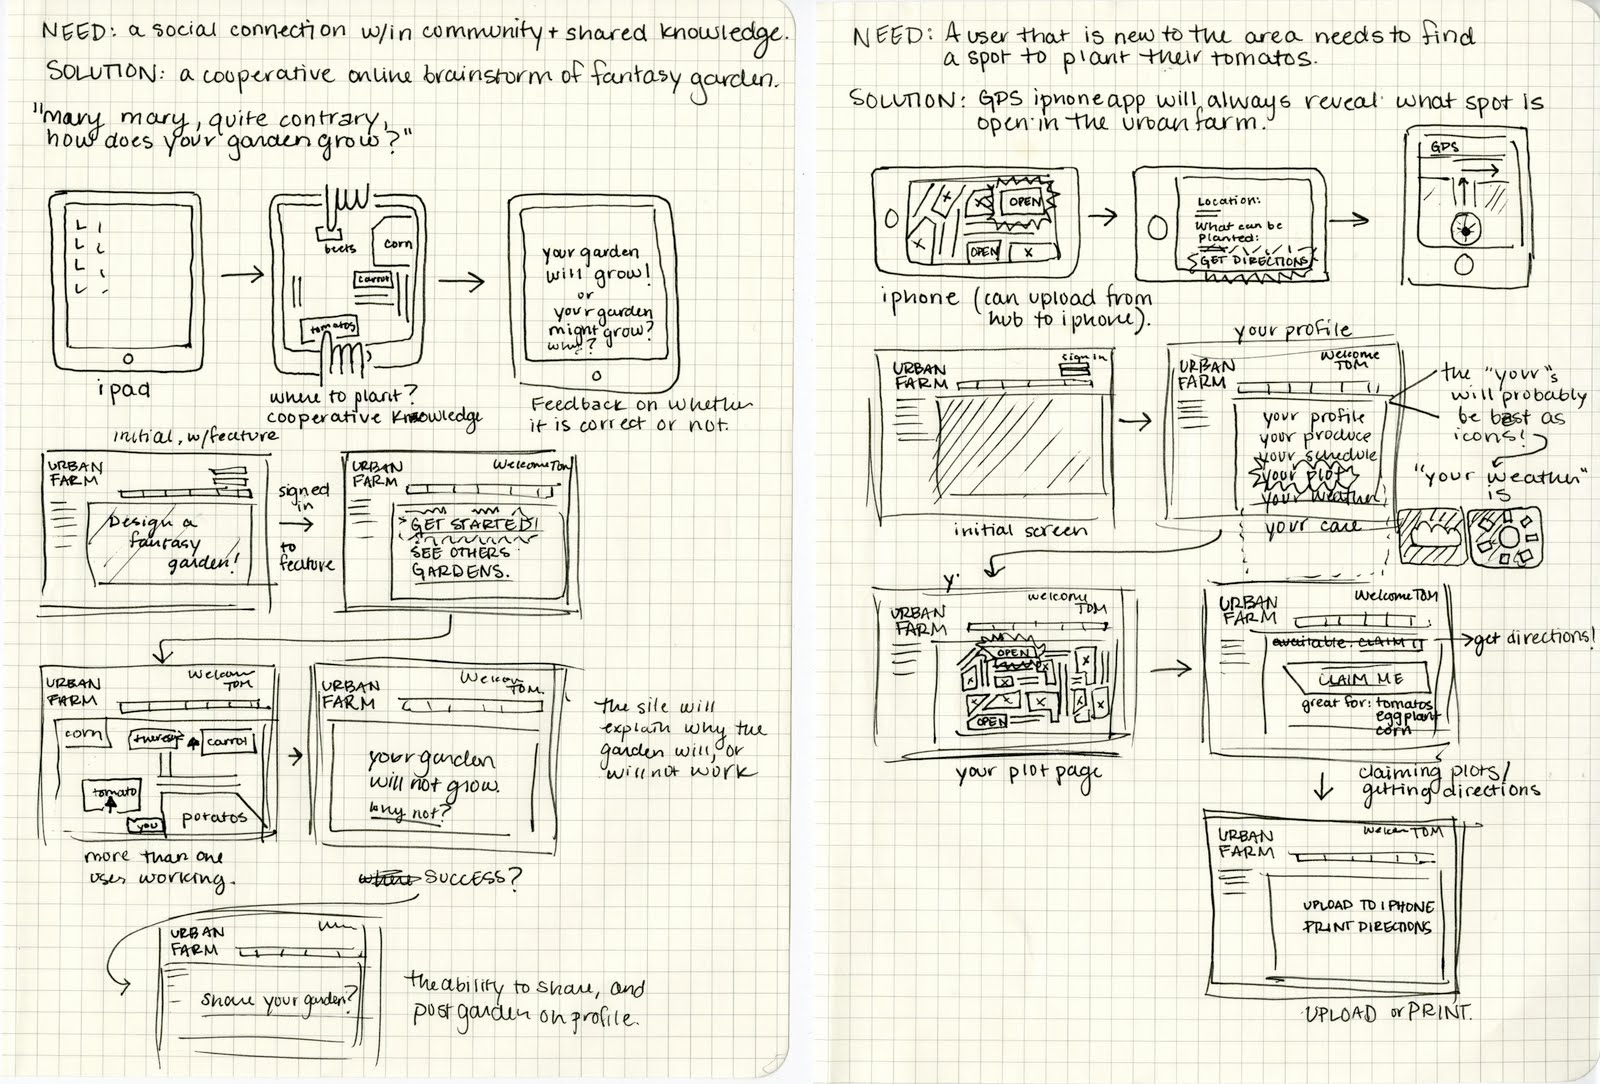 NEED: a social connection w/in community + shared knowledge.
SOLUTION: a cooperative online brainstorm of fantasy garden.
"mary mary, quite contrary,
how does your garden grow?"
ipad
beets
corn
carrot
tomatos
where to plant?
cooperative knowledge
your garden
will grow!
or
your garden
might grow?
why?
Feedback on whether
it is correct or not.
initial, w/feature
URBAN
FARM
Design a
fantasy
garden!
signed
in
to
feature
URBAN
FARM
Welcome Tom
GET STARTED!
SEE OTHERS
GARDENS.
URBAN
FARM
Welcom
TOM
corn
carrot
tomato
you
potatos
more than one
user working.
URBAN
FARM
Welcom
TOM.
your garden
will not grow.
why not?
the site will
explain why the
garden will, or
will not work
SUCCESS?
URBAN
FARM
share your garden?
the ability to share, and
post garden on profile.
NEED: A user that is new to the area needs to find
a spot to plant their tomatos.
SOLUTION: GPS iphone app will always reveal what spot is
open in the urban farm.
OPEN
OPEN
x
iphone (can upload from
hub to iphone).
Location:
What can be
planted:
GET DIRECTIONS
GPS
URBAN
FARM
sign in
initial screen
your profile
URBAN
FARM
Welcome
TOM
your profile
your produce
your schedule
your plot
your weather
your care
the "your"s
will probably
be best as
icons!
"your weather"
is
y.
URBAN
FARM
welcome
TOM
OPEN
OPEN
your plot page
URBAN
FARM
Welcome TOM
available. CLAIM it
get directions!
CLAIM ME
great for: tomatos
eggplant
corn
claiming plots/
getting directions
URBAN
FARM
Welcom TOM
UPLOAD TO IPHONE
PRINT DIRECTIONS
UPLOAD or PRINT.